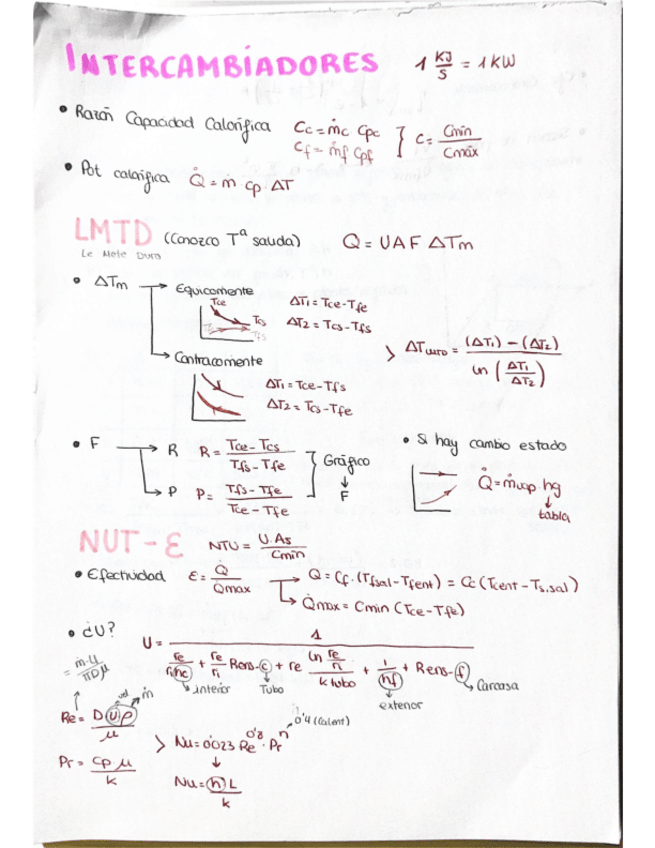 INTERCAMBIADORES 1 KJ/S = 1 KW
• Razón Capacidad Calorífica Cc = ṁc Cpc } C = Cmin/Cmáx
Cf = ṁf Cpf
• Pot calorífica Q̇ = ṁ cp · ΔT
LMTD (Conozco Tª salida) Q = UAF ΔTm
Le Mete Duro
• ΔTm → Equicorriente
Tce Tcs Tfe Tfs
ΔT1 = Tce - Tfe
ΔT2 = Tcs - Tfs
→ Contracorriente
ΔT1 = Tce - Tfs
ΔT2 = Tcs - Tfe
> ΔTLMTD = (ΔT1) - (ΔT2) / Ln (ΔT1/ΔT2)
• F → R R = Tce - Tcs / Tfs - Tfe
→ P P = Tfs - Tfe / Tce - Tfe
} Gráfico
↓
F
• Si hay cambio estado
Q̇ = ṁvap · hg
↓
tabla
NUT - Ɛ NTU = U.As / Cmin
• Efectividad Ɛ = Q̇ / Q̇max → Q = Cf. (Tfsal - Tfent) = Cc (Tcent - Ts,sal)
→ Q̇max = Cmin (Tce - Tfe)
• ¿U? U = 1 / re/ri hc + re/ri Rens-c + re Ln re/ri / k tubo + 1/hf + Rens-f
interior Tubo exterior Carcasa
= ṁ·4 / πDμ
↑
Re = D u ρ / μ vel ṁ
> Nu = 0'023 Re^0'8 · Pr^n → 0'4 (Calent)
↓
Pr = cp·μ / k
Nu = h L / k